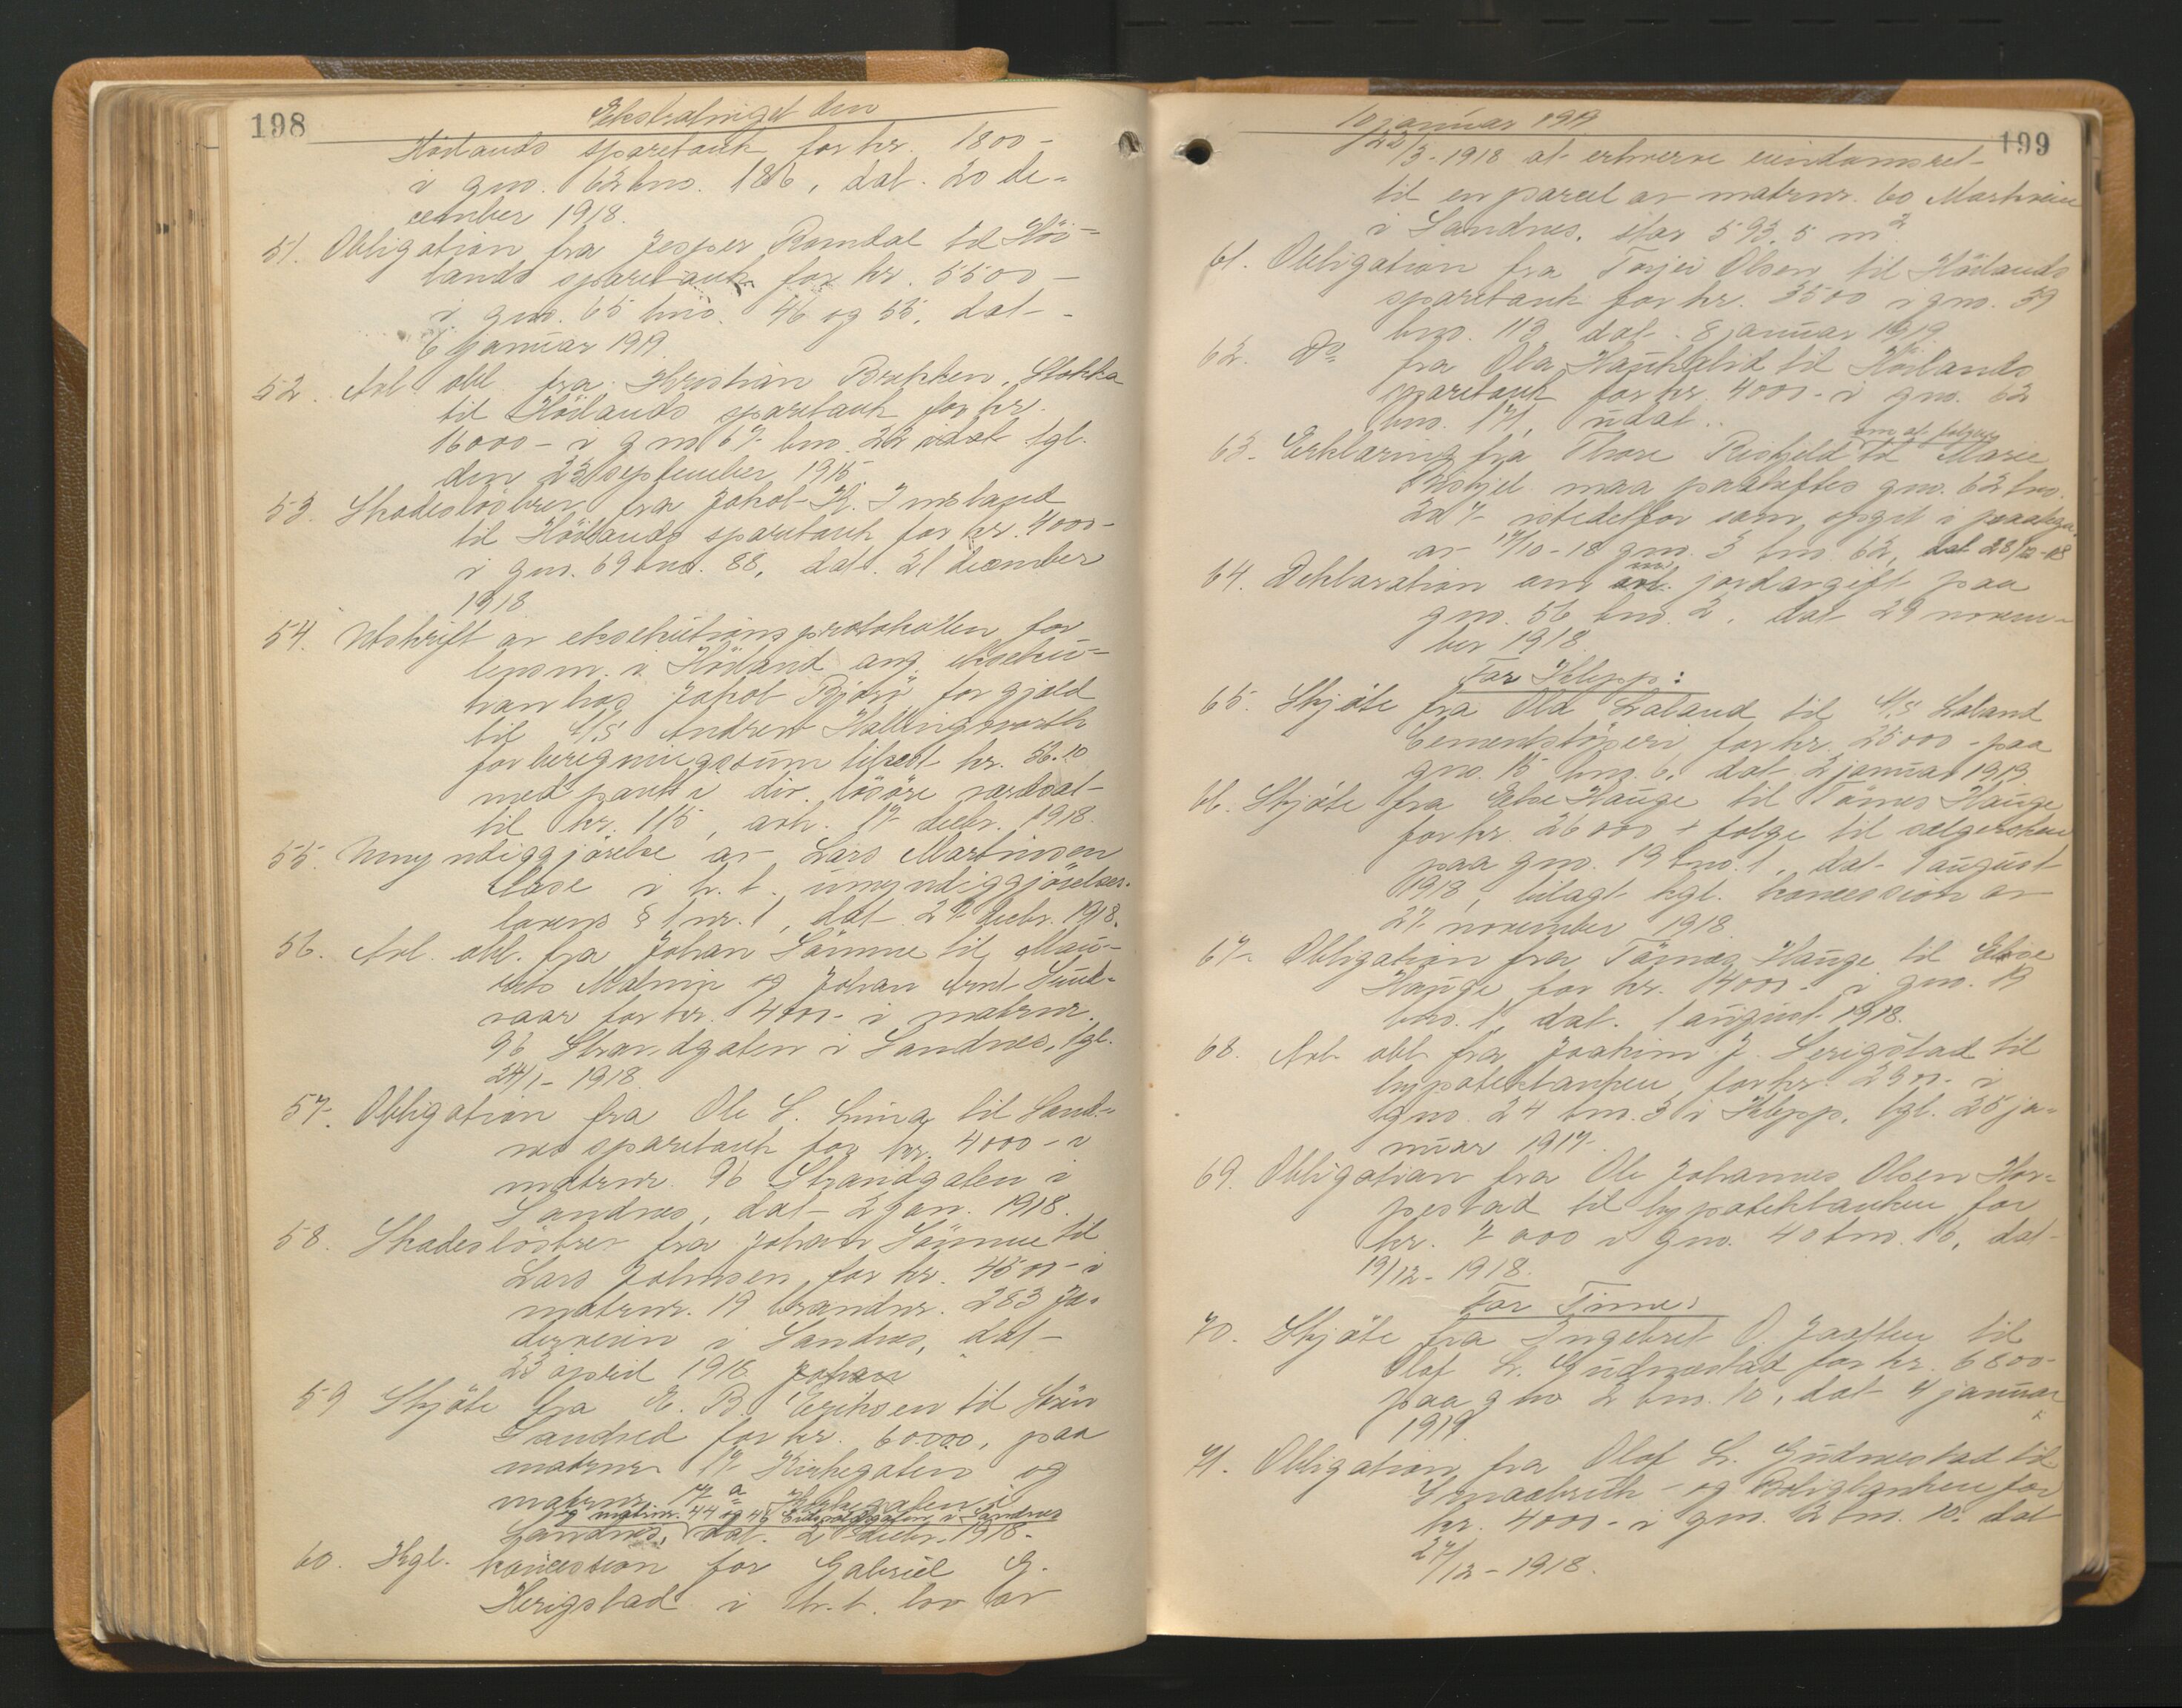 198
Ekstratinget den
Höilands sparebank for kr. 1800 -
i gno. 62 bno. 186, dat. 20 de-
cember 1918.
51. Obligation fra Jesper Romdal til Höi-
lands sparebank for kr. 5500 -
i gno. 65 bno. 46 og 55, dat.
6 januar 1919
52. Avl. obl. fra Kristian Brekken, Stokka
til Höilands sparebank for kr.
16000 - i gno 67 bno. 22 tgl.
den 23 september 1915
53. Skadeslösbrev fra Jakob K. Imsland
til Höilands sparebank for kr. 4000 -
i gno. 69 bno. 88, dat. 21 december
1918
54. Utskrift av eksekutionsprotokollen for
lensm. i Höiland ang. ekseku-
tion hos Jakob for gjæld
til A/S Andrew Hallingsworth
for beregningssum tilsat kr. 56.10
med pant i div. lösöre værdsat
til kr. 115, avh. 17 decbr. 1918.
55. Umyndiggjörelse av Lars Martinsen
i h. t. umyndiggjörelses-
lovens § 1 nr. 1, dat 27 decbr. 1918.
56. Avl. obl. fra Johan Sömme til Mau-
ritz Malmin og Johan Arnt
for kr. 4000 - i matrnr.
96 Strandgaten i Sandnes, tgl.
24/1 - 1918
57. Obligation fra Ole S. til Sand-
nes sparebank for kr. 4000 - i
matrnr. 96 Strandgaten i
Sandnes, dat 2 jan. 1918.
58. Skadeslösbrev fra Johan Sömme til
Lars Johnsen for kr. 4500 - i
matrnr. 19 brandnr. 283 Jæ-
derveien i Sandnes, dat
23 april 1918 Johan
59 Skjöte fra E. B. Eriksen til
Sandved for kr. 60.000, paa
matrnr 17 Kirkegaten og
matrnr. 17 a Kirkegaten i
og matrnr. 44 og 46 Eidsvoldgaten i Sandnes
Sandnes, dat. 2 decbr. 1918 -
60. Kgl. koncession for Gabriel G.
Herigstad i h. t. lov av
10 januar 1919
199
/3 - 1918 at erhverve eiendomsret
til en parcel av matrnr. 60
i Sandnes, stor 593,5 m²
61. Obligation fra Torjei Olsen til Höilands
sparebank for kr. 3500 i gno. 39
bno. 113 dat. 8 januar 1919
62. Do fra Ola Haukalid til Höilands
sparebank for kr. 4000 - i gno. 62
bno. 171, udat..
om at følgen
63 - Erklæring fra Thore Riskjeld til Marie
Riskjel maa paaheftes gno. 62 bno.
207 istedetfor som opgit i
av 17/10 - 18 gno. 3 bno. 62, dat 28/12 - 18
64. Deklaration om jordavgift paa
gno. 56 bno. 2, dat 29 novem-
ber 1918
For Klepp:
65. Skjöte fra Ola Laland til A/S Laland
Cementstöperi for kr. 25000 - paa
gno. 15 bno. 6. dat 2 januar 1919
66. Skjöte fra Elise Hauge til Tönnes Hauge
for kr. 26000 + folge til selgersken
paa gno. 19 bno. 1, dat 1 august
1918, bilagt kgl. koncession av
27 november 1918
67. Obligation fra Tönnes Hauge til Elise
Hauge for kr. 14000 - i gno. 19
bno. 1, dat. 1 august 1918.
68. Avl. obl. fra Joakim J. Serigstad til
hypotekbanken for kr. 2300 - i
gno. 24 bno. 3 i Klepp, tgl. 25 ja-
nuar 1917
69. Obligation fra Ole Johannes Olsen Hor-
pestad til hypotekbanken for
kr. 7000 i gno. 40 bno. 16, dat
19/12 - 1918.
For Time:
70. Skjöte fra Ingebret O. Jaatten til
Olaf L. Gudmestad for kr. 6800 -
paa gno 2 bno. 10, dat 4 januar
1919
71. Obligation fra Olaf L. Gudmestad til
Smaabruk - og Boligbanken for
kr. 4000 - i gno. 2 bno. 10. dat
27/12 - 1918.